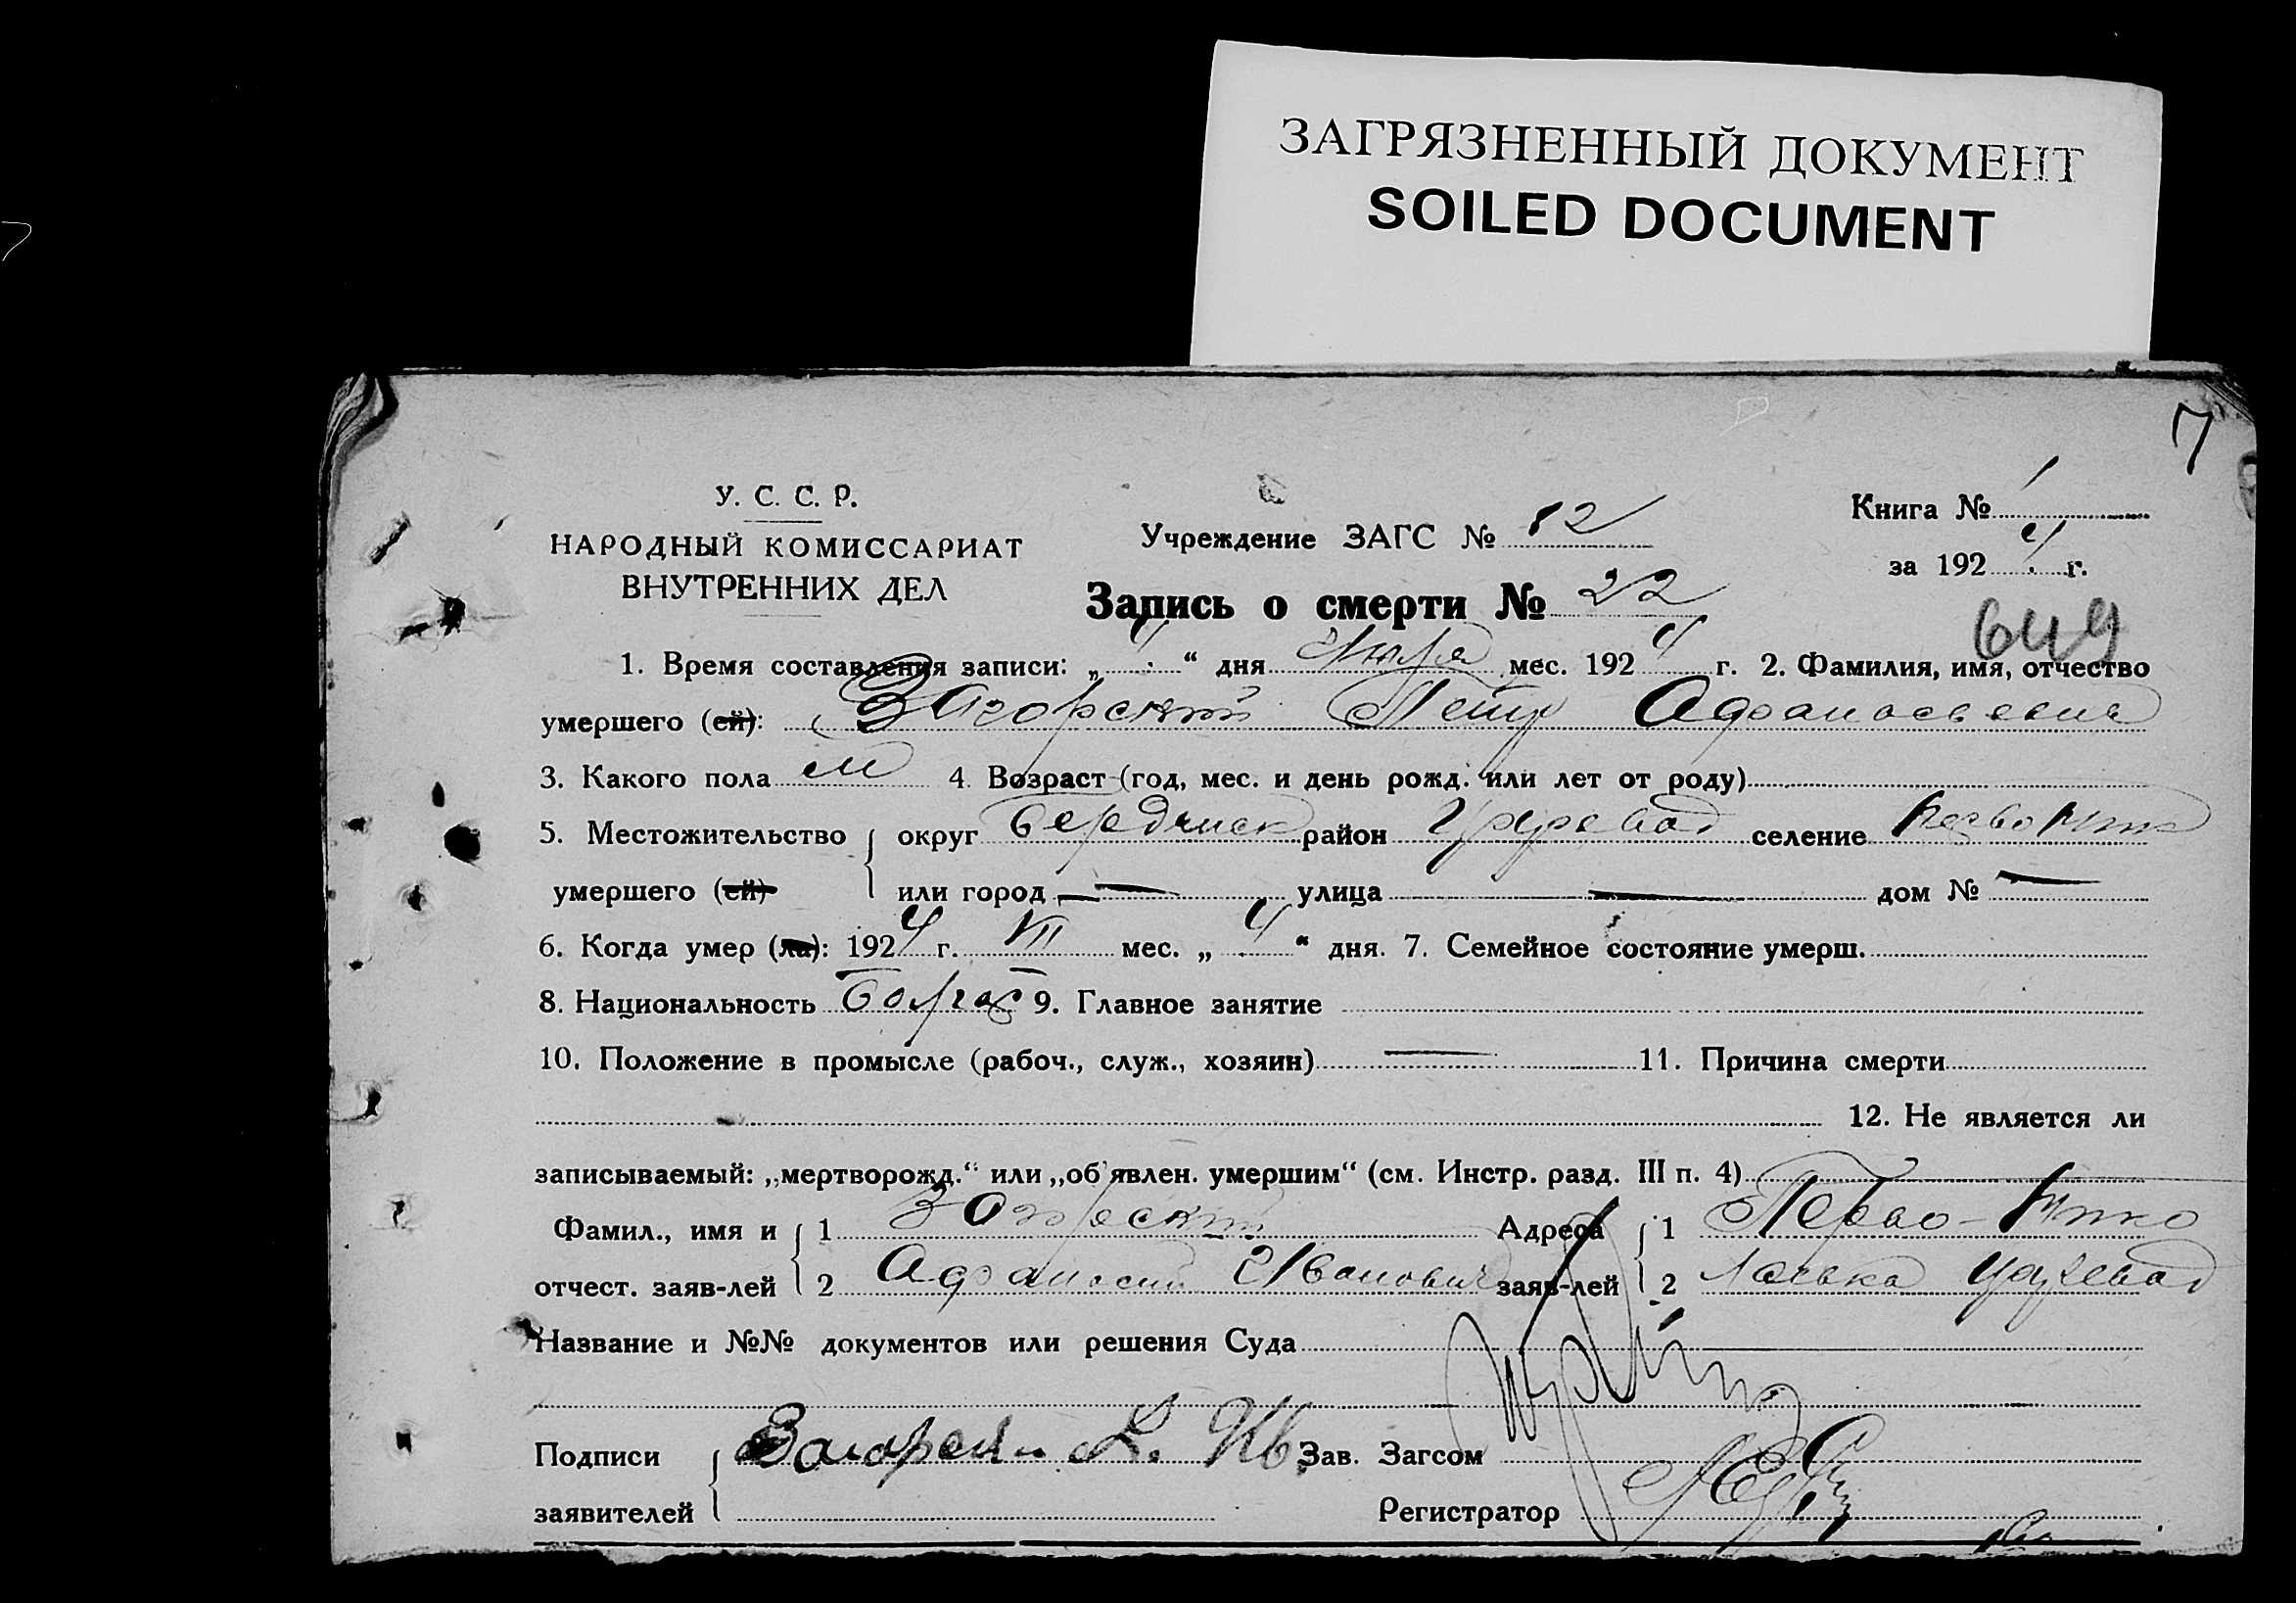 ЗАГРЯЗНЕННЫЙ ДОКУМЕНТ
SOILED DOCUMENT
7
У. С. С. Р.
НАРОДНЫЙ КОМИССАРИАТ
ВНУТРЕННИХ ДЕЛ
Учреждение ЗАГС № 12
Книга № 1
за 1924 г.
Запись о смерти № 22
649
1. Время составления записи: „4“ дня мес. 1924 г. 2. Фамилия, имя, отчество
умершего (ей): Загорский Петр Афанасьевич
3. Какого пола м 4. Возраст (год, мес. и день рожд. или лет от роду)
5. Местожительство округ район селение
умершего (ей) или город — улица — дом № —
6. Когда умер (ла): 1924 г. VII мес. „4“ дня. 7. Семейное состояние умерш.
8. Национальность Болгар 9. Главное занятие
10. Положение в промысле (рабоч., служ., хозяин) — 11. Причина смерти
12. Не является ли
записываемый: „мертворожд.“ или „об'явлен. умершим“ (см. Инстр. разд. III п. 4)
Фамил., имя и 1 Загорский Адреса 1 Перво-
отчест. заяв-лей 2 Афанасий Иванович заяв-лей 2
Название и №№ документов или решения Суда
Подписи Зав. Загсом
заявителей Регистратор